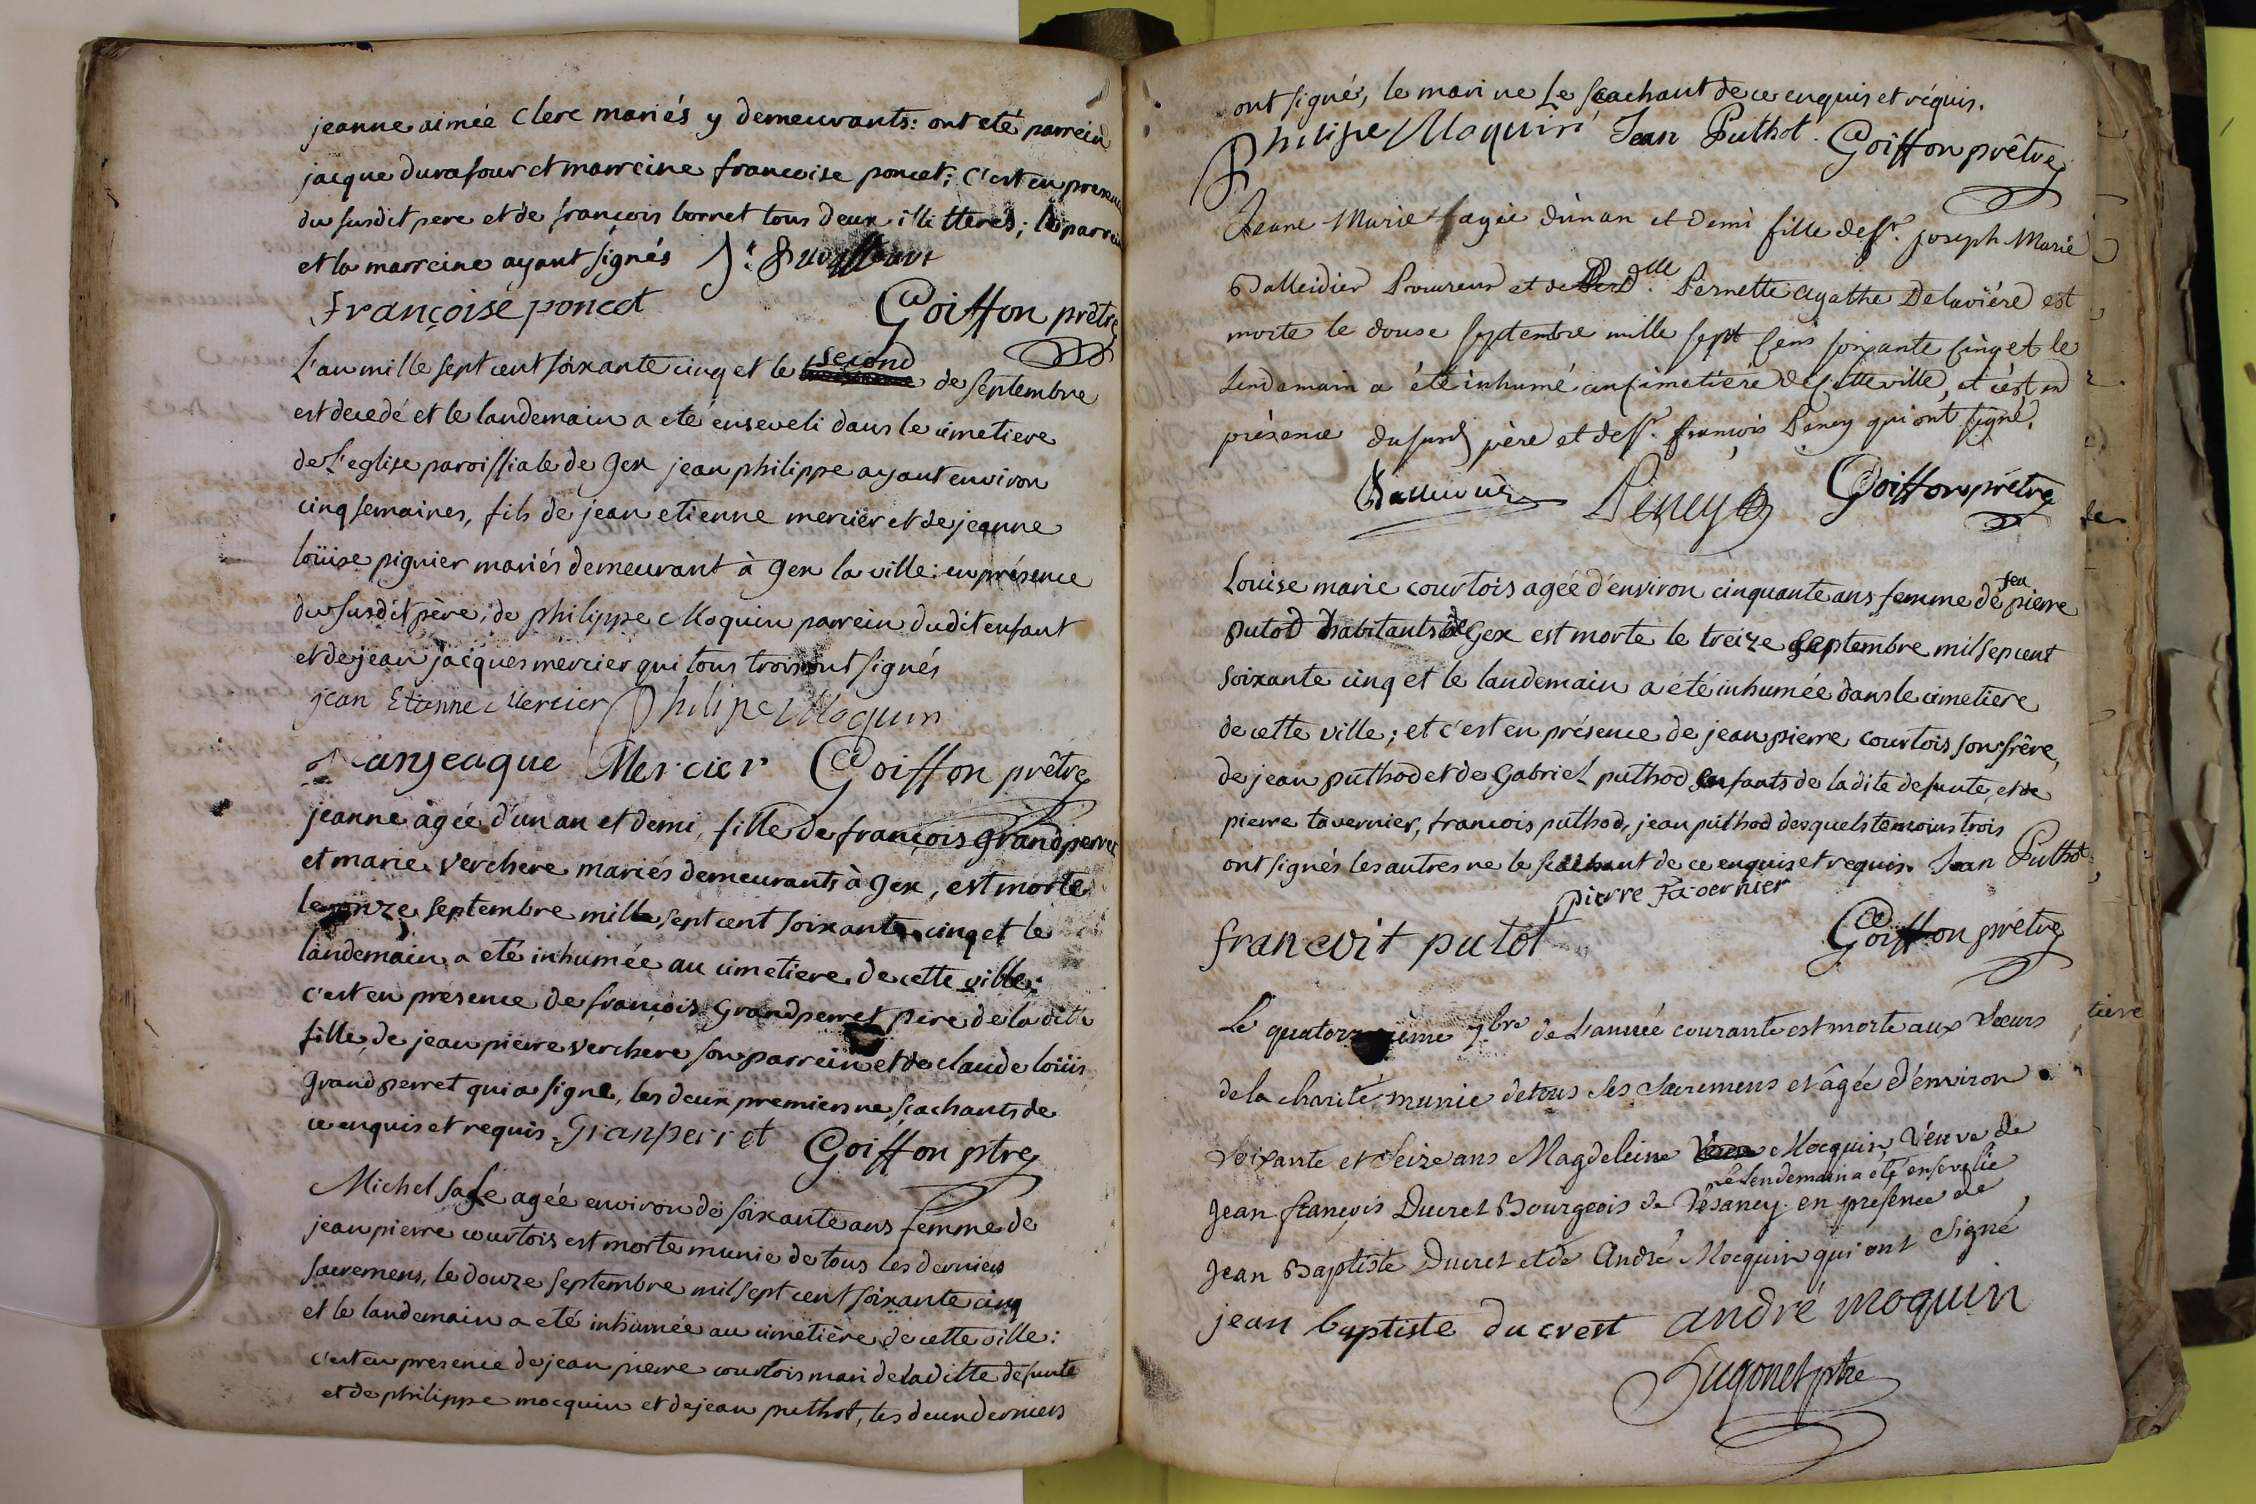 jeanne aimée Clerc mariés y demeurants: ont eté parrein
jacque durafour et marreine francoise poncet; c'est en presence
du susdit pere et de françois bornet tous deux illitterés; le parrein
et la marreine ayant signés
Françoise poncet Goiffon prêtre
L'an mille sept cent soixante cinq et le second de septembre
est decedé et le landemain a eté enseveli dans le cimetiere
de L'eglise paroissiale de Gex jean philippe ayant environ
cinq semaines, fils de jean etienne mercier et de jeanne
loüise pignier mariés demeurant à Gex la ville: en présence
du susdit père, de philippe Moquin parrein dudit enfant
et de jean jacques mercier qui tous trois ont signés
jean Etienne Mercier Philipe Moquin
Janjeaque Mercier Goiffon prêtre
jeanne agée d'un an et demi, fille de françois grandperret
et marie verchere mariés demeurants à Gex, est morte
le onze septembre mille sept cent soixante cinq et le
landemain a eté inhumée au cimetiere de cette ville:
c'est en presence de françois Grandperret pere de la ditte
fille, de jean pierre verchere son parrein et de claude loüis
grandperret qui a signé, les deux premiers ne sçachants de
ce enquis et requis. Granperret Goiffon ptre
Michel sase agée environ de soixante ans femme de
jean pierre courtois est morte munie de tous les derniers
sacremens, le douze septembre mil sept cent soixante cinq
et le landemain a eté inhumée au cimetière de cette ville:
c'est en presence de jean pierre courtois mari de la ditte defunte
et de philippe mocquin et de jean puthod, les deux derniers
ont signé, le mari ne le sçachant de ce enquis et réquis.
Philipe Moquin Jean Puthot Goiffon prêtre
Jeane Marie agée d'un an et demi fille de sr. joseph Marie
Balleidier Procureur et de Dlle. Pernette agathe Delaviére est
morte le douse septembre mille sept cens soixante cinq et le
lendemain a été inhumé au cimetiére de cette ville, et c'est en
présence du susd père et de sr. françois Peney qui ont signé.
Balleidier Peney Goiffon prêtre
Louise marie courtois agée d'environ cinquante ans femme de feu pierre
putod habitants de Gex est morte le treize septembre mil sept cent
soixante cinq et le landemain a eté inhumée dans le cimetiere
de cette ville; et c'est en présence de jean pierre courtois son frêre,
de jean puthod et de Gabriel puthod enfants de ladite defunte, et de
pierre tavernier, francois puthod, jean puthod desquels temoins trois
ont signés les autres ne le sçachant de ce enquis et requis. Jean Puthot
pierre Tavernier
francoit putot Goiffon prêtre
Le quatorzieme 7bre de L'année courante est morte aux sœurs
de la charité munie de tous ses sacremens et âgée d'environ
soixante et seize ans Magdeleine Mocquin Veuve de
le lendemain a eté ensevelie
Jean françois Ducret Bourgeois de Vesancy. en présence de
Jean Baptiste Ducret et de André Mocquin qui ont signé
jean baptiste du crest andré moquin
Hugonet ptre